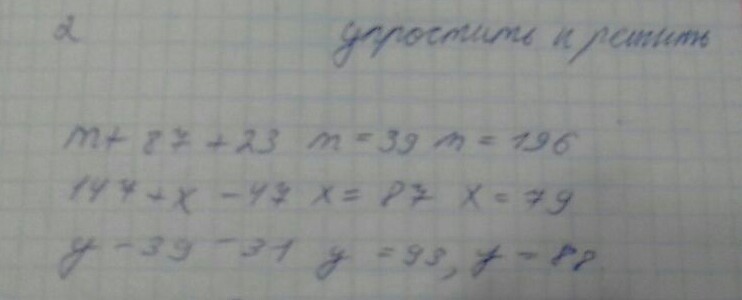 2 упростить и решить
m + 87 + 23 m = 39 m = 196
147 + x - 47 x = 87 x = 79
y - 39 - 31 y = 93, y = 88.